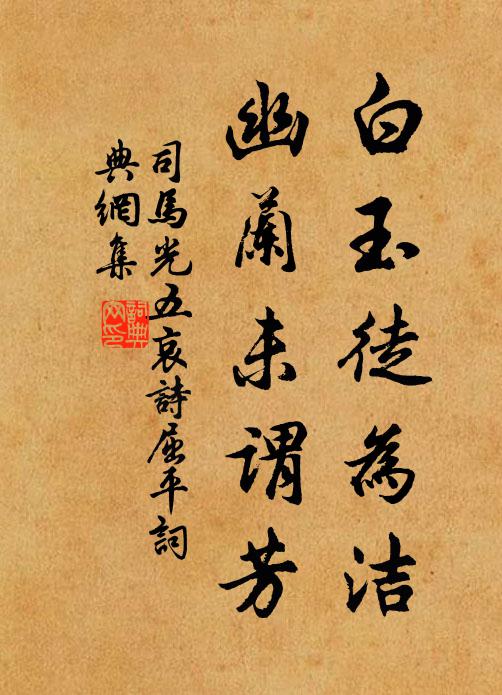 白玉徒為洁
幽蘭未謂芳
司馬光五哀詩屈平詞
典網集
詞典